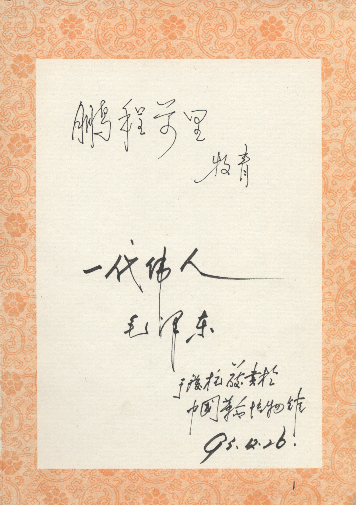 鹏程万里
牧青
一代伟人
毛泽东
中国革命博物馆
95.12.26.